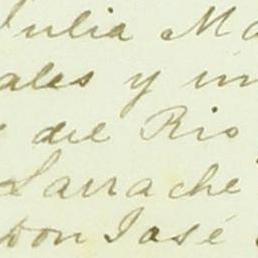 Julia Ma
ales y un
del Rio
Larrache
Don José